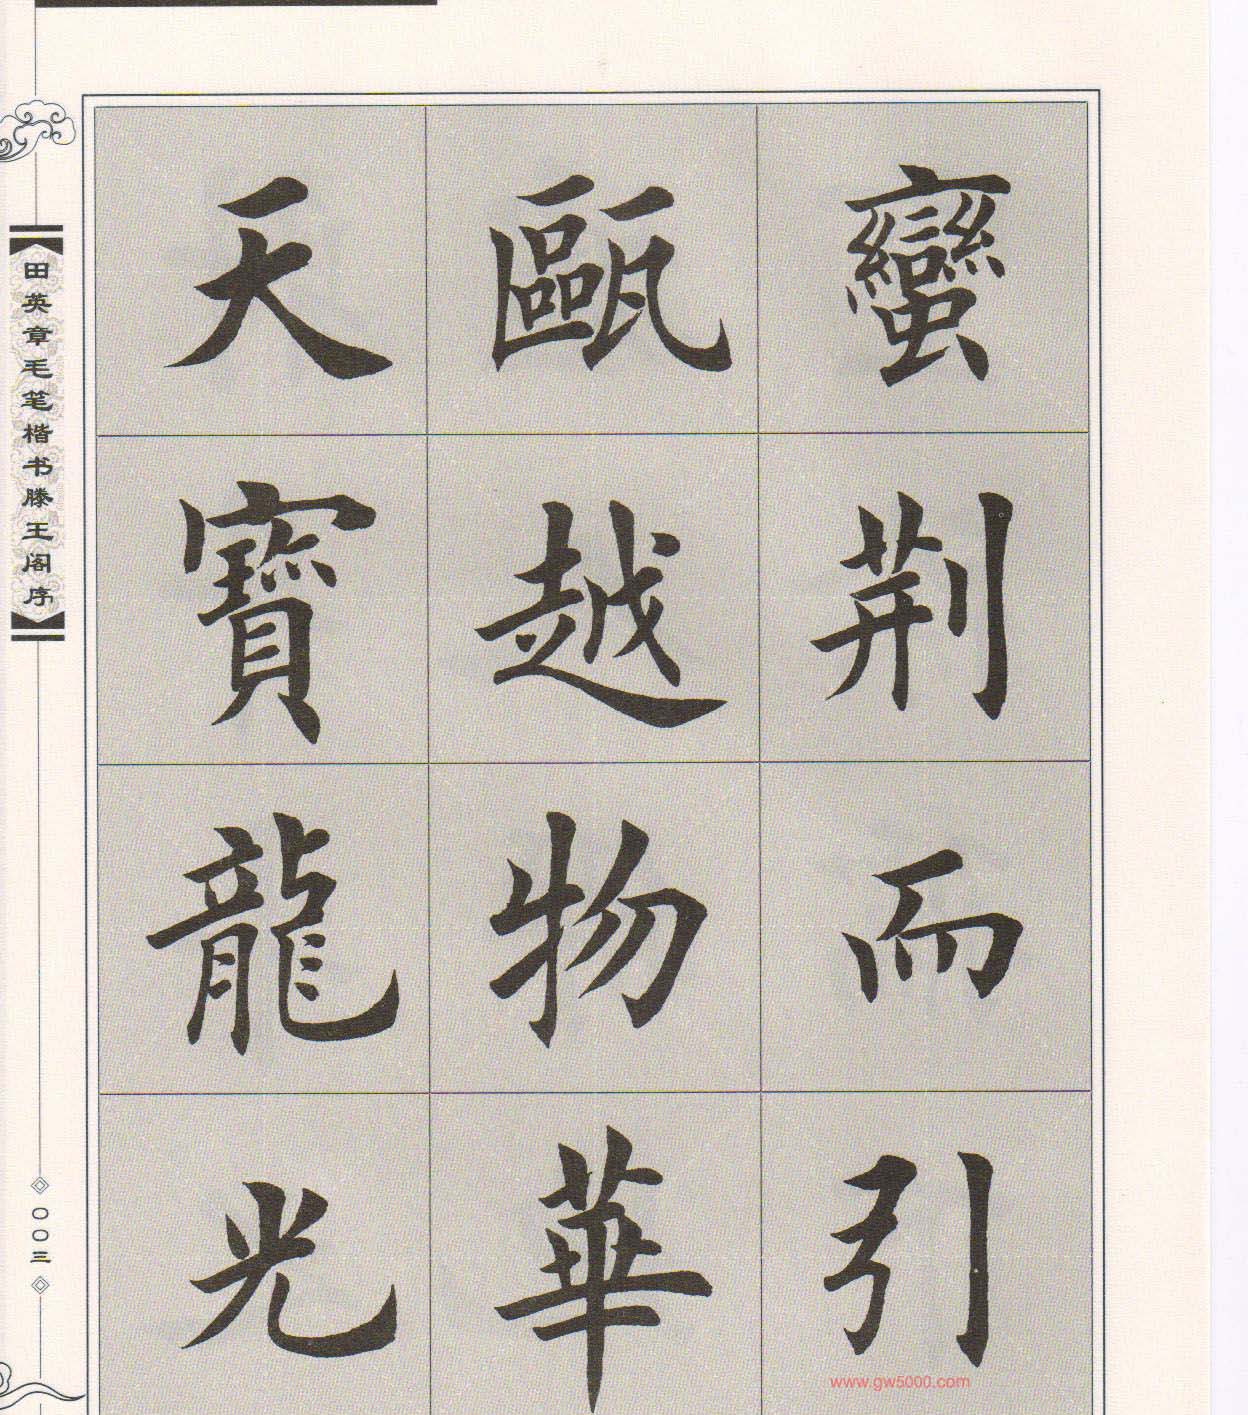 蠻荆而引
甌越物華
天寶龍光
田英章毛笔楷书滕王阁序
〇〇三
www.gw5000.com